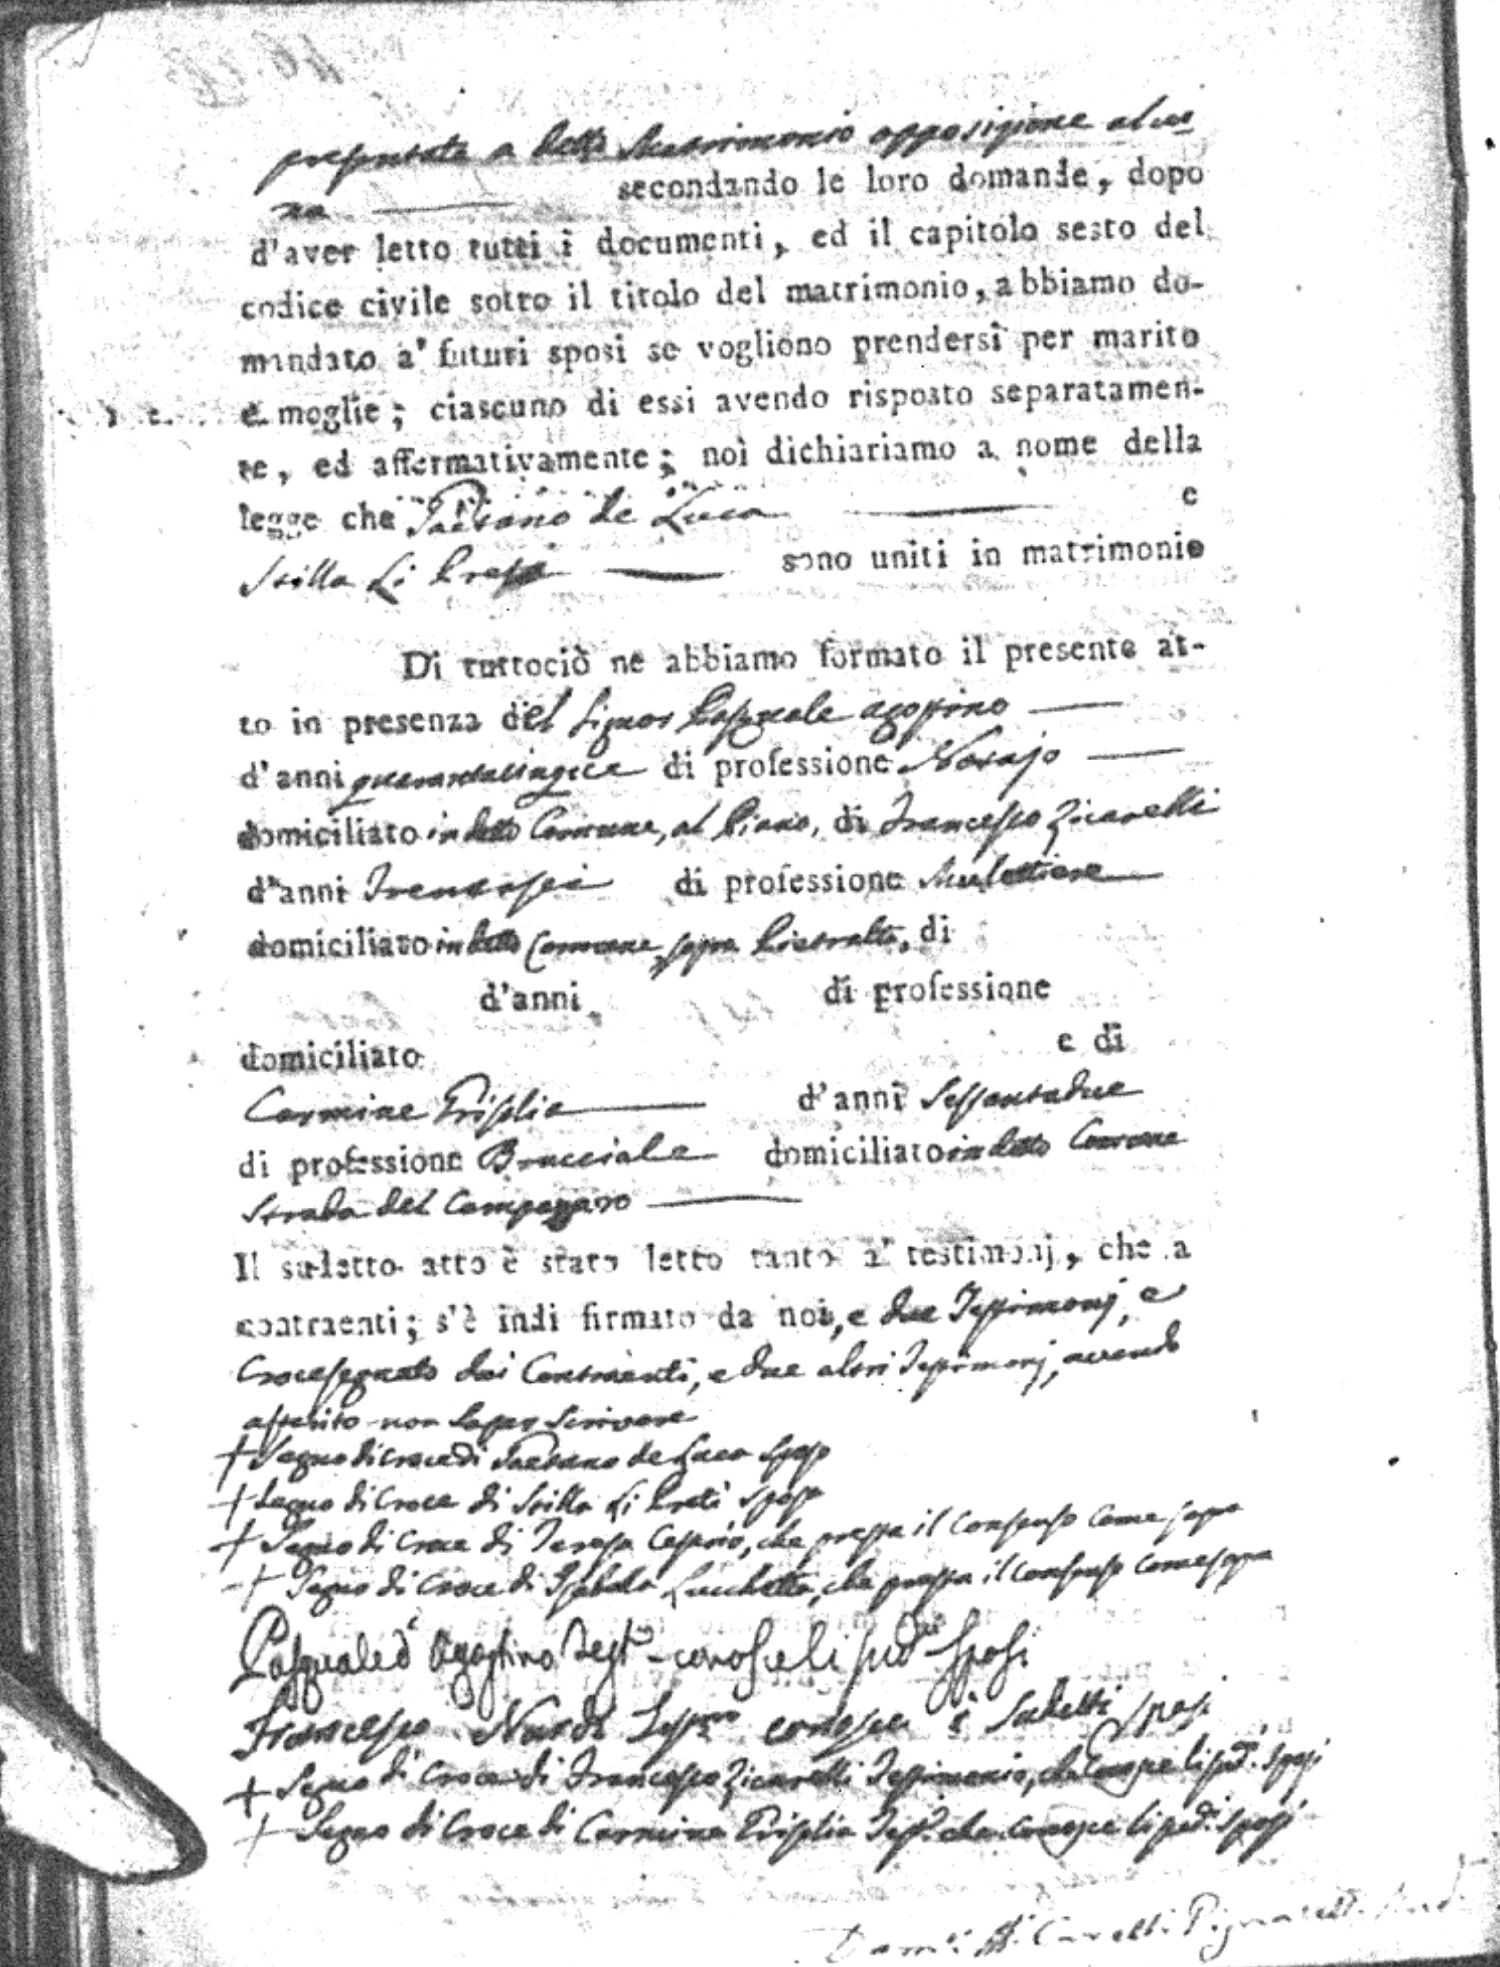 presentata a detto Matrimonio opposizione alcu=
na secondando le loro domande, dopo
d'aver letto tutti i documenti, ed il capitolo sesto del
codice civile sotto il titolo del matrimonio, abbiamo do-
mandato a' futuri sposi se vogliono prendersi per marito
e moglie; ciascuno di essi avendo risposto separatamen-
te, ed affermativamente; noi dichiariamo a nome della
legge che Gaetano de Luca e
Stilla Li Preti sono uniti in matrimonio
Di tuttociò ne abbiamo formato il presente at-
to in presenza del Signor Pasquale agostino
d'anni di professione Notajo
domiciliato in detto Comune, al Piano, di Francesco Zicarelli
d'anni Trentasei di professione Mulattiere
domiciliato in detto Comune, sopra Pietralta, di
d'anni di professione
domiciliato e di
Carmine Prisplia d'anni Sessantadue
di professione Bracciale domiciliato in detto Comune
Strada del Campanaro
Il sudetto atto è stato letto tanto a' testimonj, che a
contraenti; s'è indi firmato da noi, e due Testimonj, e
Crocesegnato dai Contraenti, e due altri Testimonj, avendo
asserito non saper scrivere
+ Segno di Croce di Gaetano de Luca Sposo
+ Segno di Croce di Stilla Li Preti Sposa
+ Segno di Croce di Teresa Cesario, che presta il Consenso Come sopra
+ Segno di Croce di Isabela Lucchetta, che presta il Consenso Come sopra
Pasquale d' Agostino Test.o conosce li sud.ti Sposi
Francesco Nardi Testim.o conosce i Sudetti Sposi
+ Segno di Croce di Francesco Zicarelli Testimonio, che Conosce li sud.i Sposi
+ Segno di Croce di Carmine Prisplia Test.o che Conosce li sud.i Sposi